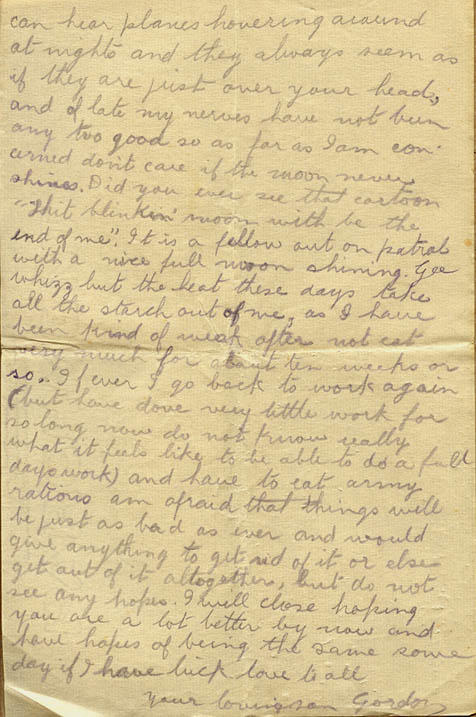 can hear planes hovering around
at nights and they always seem as
if they are just over your head,
and of late my nerves have not been
any too good so as far as I am con-
cerned don't care if the moon never
shines. Did you ever see that cartoon
"Thit blinkin' moon with be the
end of me". It is a fellow out on patrol
with a nice full moon shining. Gee
whizz but the heat these days take
all the starch out of me, as I have
been kind of weak after not eat
very much for about ten weeks or
so. If ever I go back to work again
(but have dove very little work for
so long now do not know really
what it feels like to be able to do a full
days work) and have to eat army
rations am afraid that things will
be just as bad as ever and would
give anything to get rid of it or else
get out of it altogether, but do not
see any hopes. I will close hoping
you are a lot better by now and
have hopes of being the same some
day if I have luck love to all
your loving son Gordon